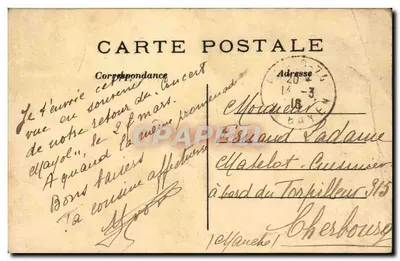 CARTE POSTALE
Correspondance
Adresse
Je t'envoie cette
vue en souvenir
de notre retour du Concert
Mayol, le 2 mars.
A quand la même promenade
Bons baisers
Ta cousine affectueuse
Monsieur
Fernand Ladame
Matelot-Cuisinier
à bord du Torpilleur 315
Cherbourg
(Manche)